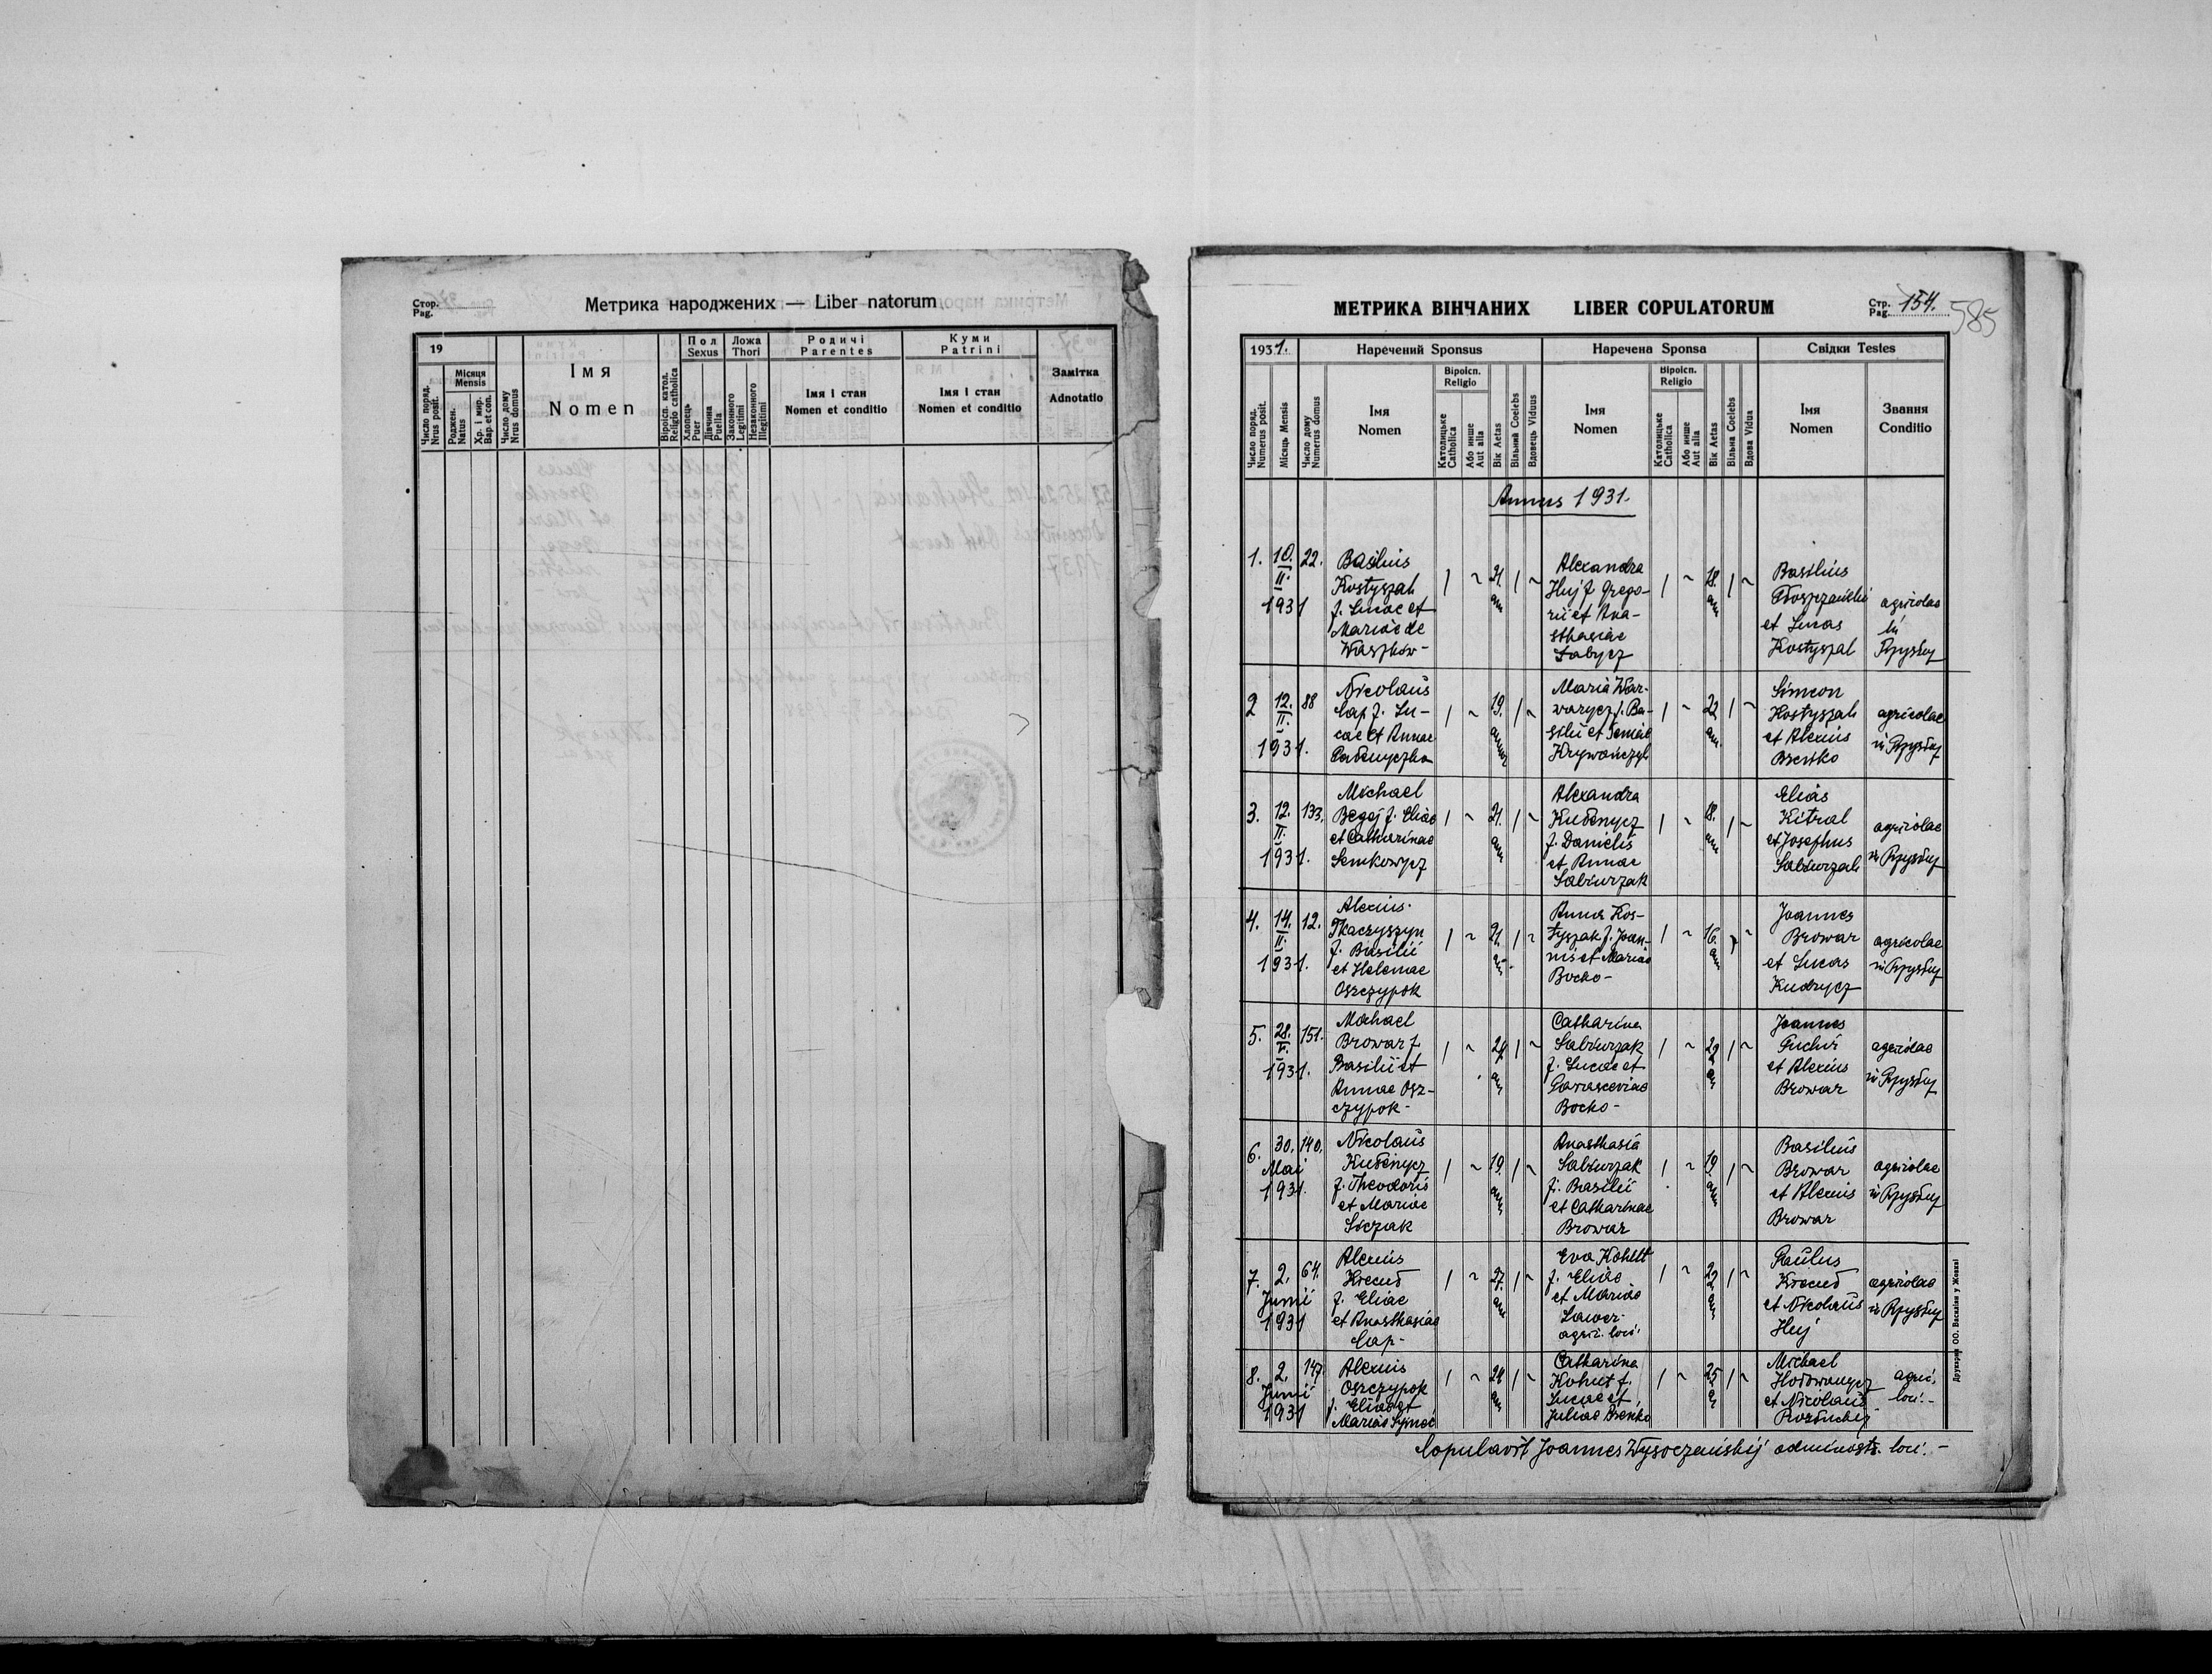 Стор.
Pag.
Метрика народжених — Liber natorum
19
Число поряд.
Nrus posit.
Місяця
Mensis
Роджен.
Natus
Хр. і мир.
Bap. et con.
Число дому
Nrus domus
Імя
Nomen
Віроісп. катол.
Religio catholica
Пол
Sexus
Хлопець
Puer
Дівчина
Puella
Ложа
Thori
Законного
Legitimi
Незаконного
Illegitimi
Родичі
Parentes
Імя і стан
Nomen et conditio
Куми
Patrini
Імя і стан
Nomen et conditio
Замітка
Adnotatio
МЕТРИКА ВІНЧАНИХ LIBER COPULATORUM
Стр.
Pag. 154.
585
1931.
Наречений Sponsus
Наречена Sponsa
Свідки Testes
Число поряд.
Numerus posit.
Місяць Mensis
Число дому
Numerus domus
Імя
Nomen
Віроісп.
Religio
Католицьке
Catholica
Або инше
Aut alia
Вік Aetas
Вільний Coelebs
Вдовець Viduus
Імя
Nomen
Віроісп.
Religio
Католицьке
Catholica
Або инше
Aut alia
Вік Aetas
Вільна Coelebs
Вдова Vidua
Імя
Nomen
Звання
Conditio
Annus 1931.
1. 10. II. 1931 22.
Basilius
Kostyszak
f. Lucae et
Mariae de
Waszkow-
21. an
Alexandra
Huj f. Grego-
rii et Ana-
sthasiae
18. an
Basilius
et Lucas
Kostyszak
agricolae
in
2 12. II. 1931. 88
Nicolaus
Cap f. Lu-
cae et Annae
19. ann
Maria War-
warycz f. Ba-
silii et
22 an.
Simeon
Kostyszak
et Alexius
agricolae
in
3. 12. II. 1931. 133.
Michael
Begej f. Eliae
et Catharinae
Senkowycz
21. ann
Alexandra
Kubenycz
f. Danielis
et Annae
Sabiurzak
18. ann
Elias
Kitral
et Josephus
Sabiurzak
agricolae
in
4. 14. II. 1931. 12.
Alexius
Tkaczyszyn
f. Basilii
et Helenae
Oszczypok
21. an.
Anna Kos-
tyszak f. Joan-
nis et Mariae
Bocko-
16. an
Joannes
Browar
et Lucas
Kudrycz
agricolae
in
5. 28. V. 1931. 151.
Michael
Browar f
Basilii et
Annae Osz-
czypok-
24 an
Catharina
Sabiurzak
f. Lucae et
Parasceviae
Bocko-
22 an
Joannes
et Alexius
Browar
agricolae
in
6. 30. Mai 1931. 140.
Nicolaus
Kubenycz
f. Theodoris
et Mariae
Siczak
19. ann
Anasthasia
Sabiurzak
f. Basilii
et Catharinae
Browar
19 ann
Basilius
Browar
et Alexius
Browar
agricolae
in
7. 2. Junii 1931 64.
Alexius
f. Eliae
et Anasthasiae
Cap-
27. ann
Eva Kohut
f. Eliae
et Mariae
agric. loci.
22 an
Paulus
et Nicolaus
Huj
agricolae
in
8. 2. Junii 1931 147.
Alexius
Oszczypok
f. Eliae et
Mariae
24 an
Catharina
Kohut f.
Lucae et
Juliae
25 a
Michael
et Nicolaus
agric.
loci.-
Copulavit Joannes Wysoczanskij administr. loci. -
Друкарня ОО. Василіян у Жовкві